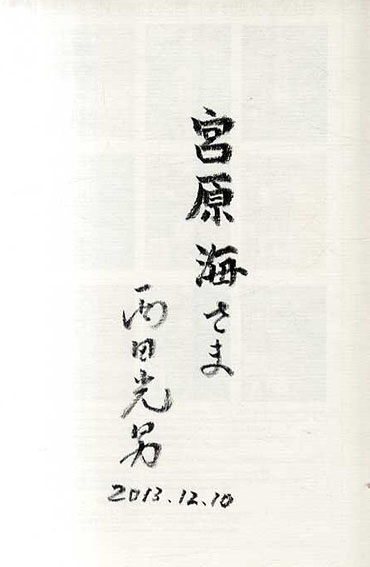 宮原海さま
雨田光男
2013.12.10